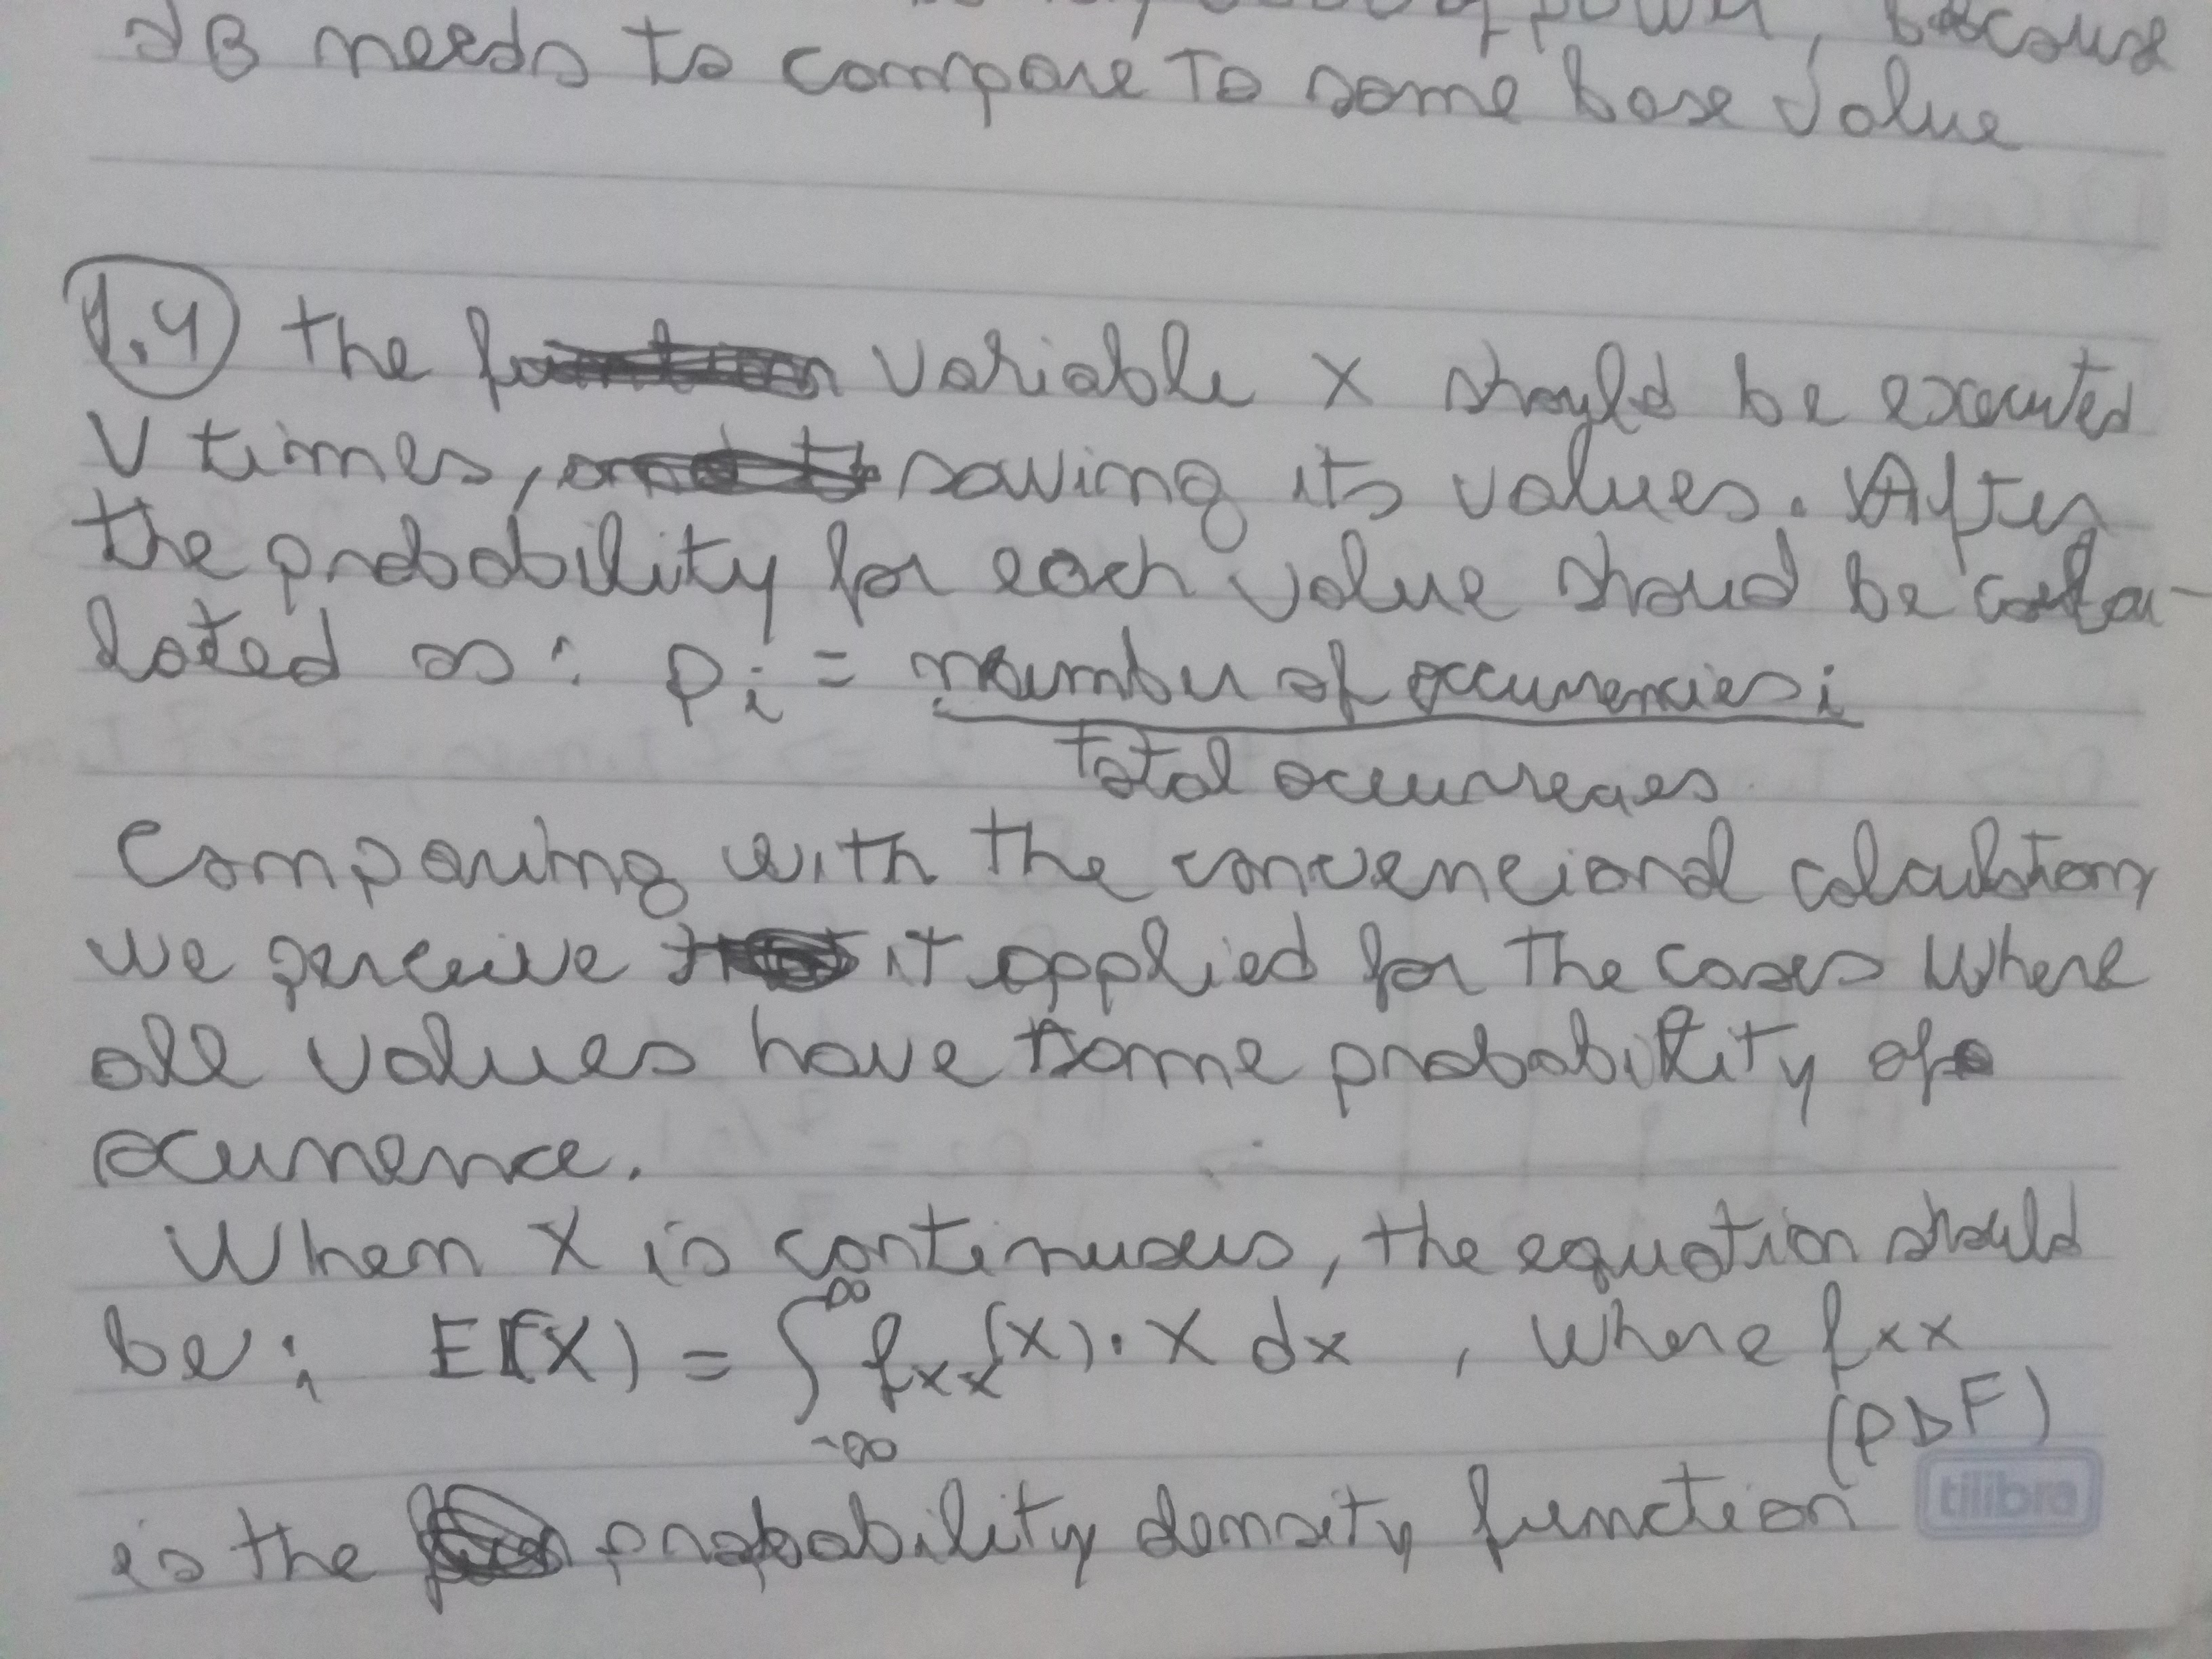 of power, because
dB needs to compare to some base value
1.4 the variable x should be executed
V times, saving its values. After
the probability for each value shoud be calcu-
lated as: Pi = number of occurrencies i
total ocurrences
Comparing with the convencional calculation
we perceive it applied for the cases where
all values have same probability of
ocurrence.
When X is continuous, the equation should
be: E(X) = ∫ ∞ -∞ fxx(x) . x dx , where fxx
(PDF)
is the probability density function
tilibra